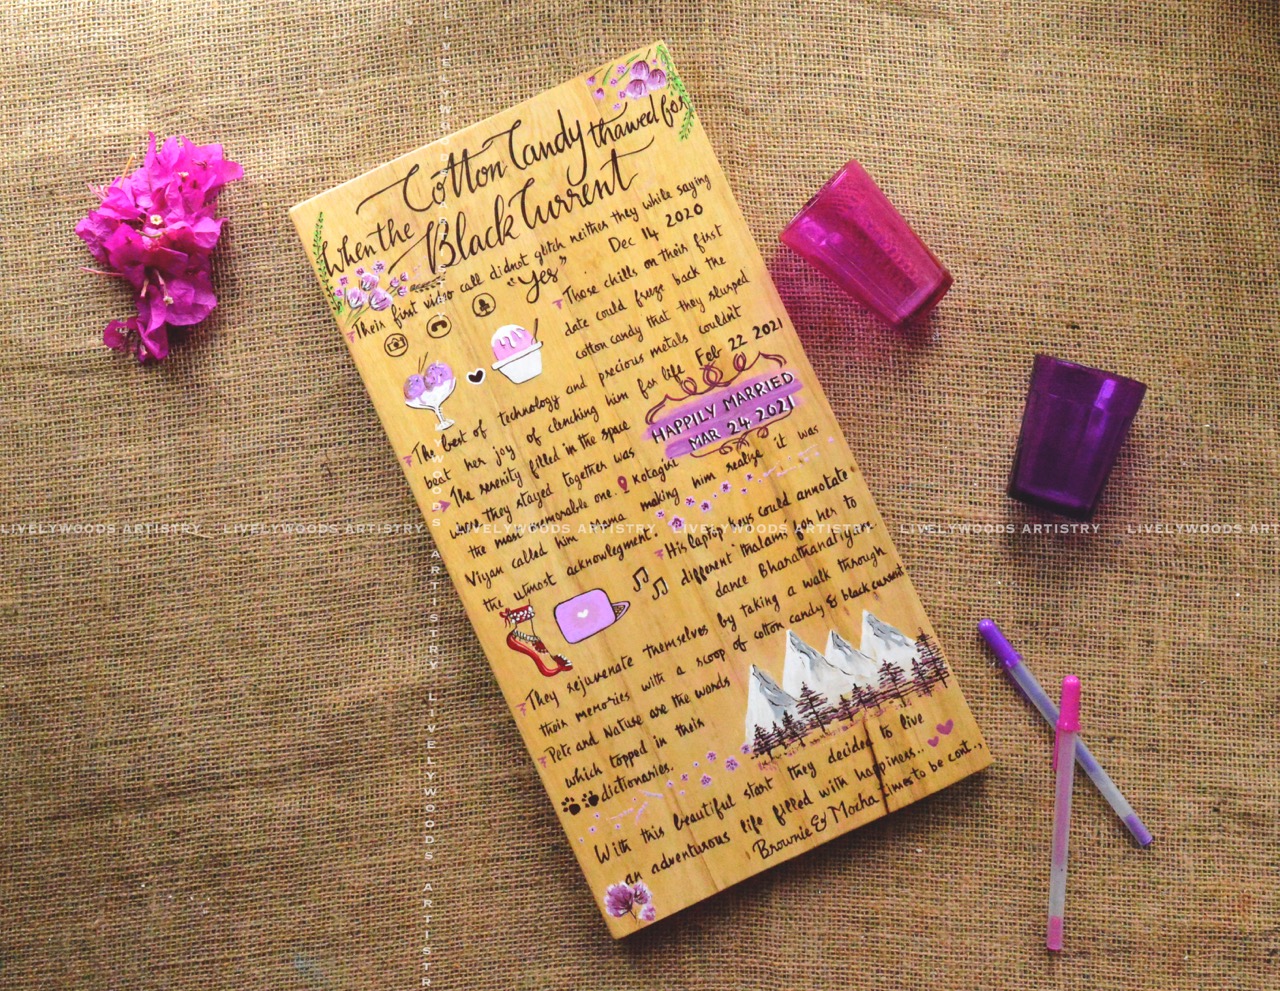 When the Cotton Candy thawed for
Black Current
Their first video call didnot glitch neither they while saying
"Yes" Dec 14 2020
Those chills on their first
date could freeze back the
cotton candy that they slurped
The best of technology and precious metals couldn't
beat her joy of clenching him for life Feb 22 2021
HAPPILY MARRIED
MAR 24 2021
The serenity filled in the space
when they stayed together was
the most memorable one. Kotagiri
Viyan called him Mama making him realize it was
the utmost acknowlegment.
His laptop keys could annotate
different thalams for her to
dance Bharathanatiyam
They rejuvenate themselves by taking a walk through
their memories with a scoop of cotton candy & black current
Pets and Nature are the words
which topped in their
dictionaries.
With this beautiful start they decided to live
an adventurous life filled with happiness..
Brownie & Mocha times to be cont..,
LIVELYWOODS ARTISTRY LIVELYWOODS ARTISTRY LIVELYWOODS ARTISTRY LIVELYWOODS ARTISTRY LIVELYWOODS ARTISTRY LIVELYWOODS ART
LIVELYWOODS ARTISTRY LIVELYWOODS ARTISTR